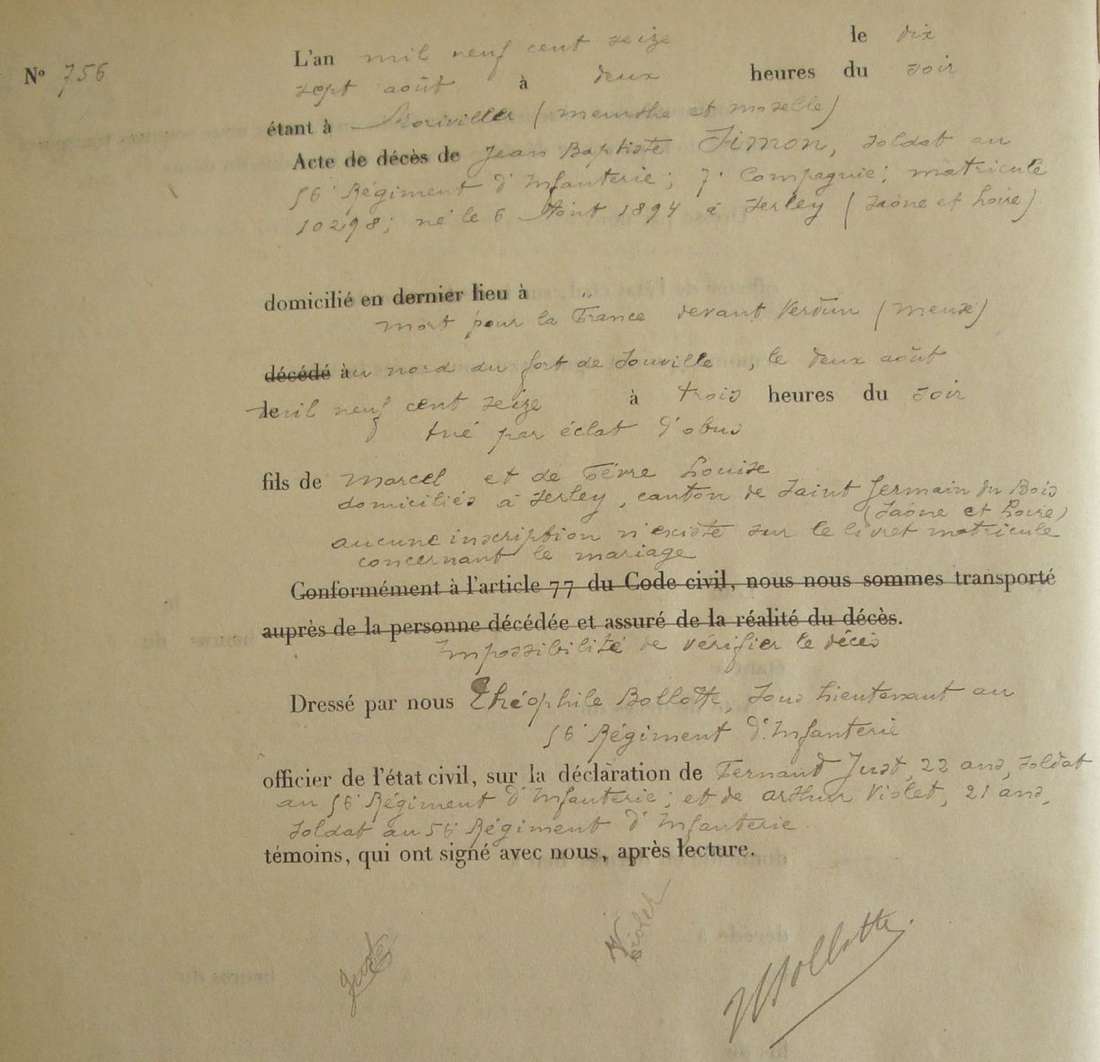 N° 756
L'an mil neuf cent seize le dix
sept août à deux heures du soir
étant à Moriviller (meurthe et moselle)
Acte de décès de Jean Baptiste Simon, soldat au
56e Régiment d'Infanterie; 7e Compagnie; matricule
10298; né le 6 Août 1894 à Serley (Saône et Loire)
domicilié en dernier lieu à "
mort pour la France devant Verdun (meuse)
décédé au nord du fort de Souville, le deux août
mil neuf cent seize à trois heures du soir
tué par éclat d'obus
fils de Marcel et de Fèvre Louise
domiciliés à Serley, canton de Saint Germain du Bois
(Saône et Loire)
aucune inscription n'existe sur le livret matricule
concernant le mariage
Conformément à l'article 77 du Code civil, nous nous sommes transporté
auprès de la personne décédée et assuré de la réalité du décès.
Impossibilité de vérifier le décès
Dressé par nous Théophile Bollotte, Sous Lieutenant au
56e Régiment d'Infanterie
officier de l'état civil, sur la déclaration de Fernand Just, 22 ans, soldat
au 56e Régiment d'Infanterie; et de Arthur Violet, 21 ans,
soldat au 56e Régiment d'Infanterie
témoins, qui ont signé avec nous, après lecture.
Just Violet Bollotte